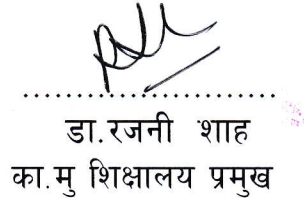 डा.रजनी शाह
का.मु शिक्षालय प्रमुख